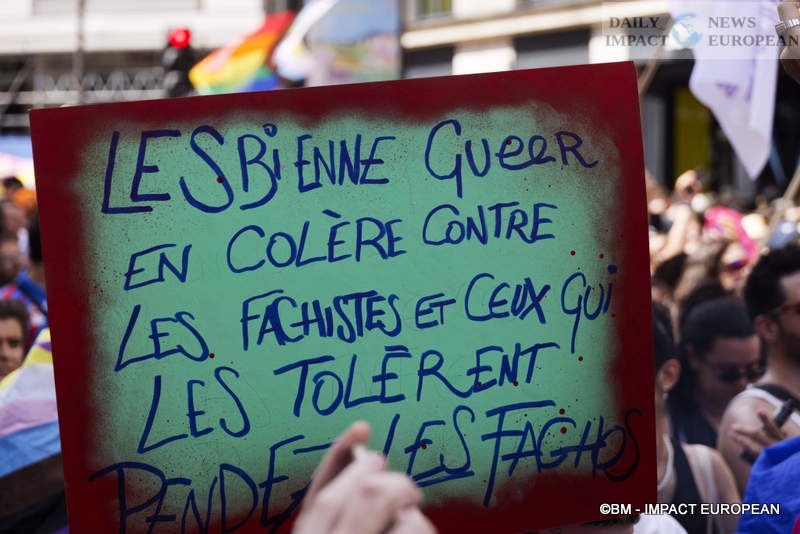 DAILY NEWS
IMPACT EUROPEAN
LESBIENNE QUEER
EN COLÈRE CONTRE
LES FACHISTES ET CEUX QUI
LES TOLĒRENT
PENDEZ LES FACHOS
©BM - IMPACT EUROPEAN